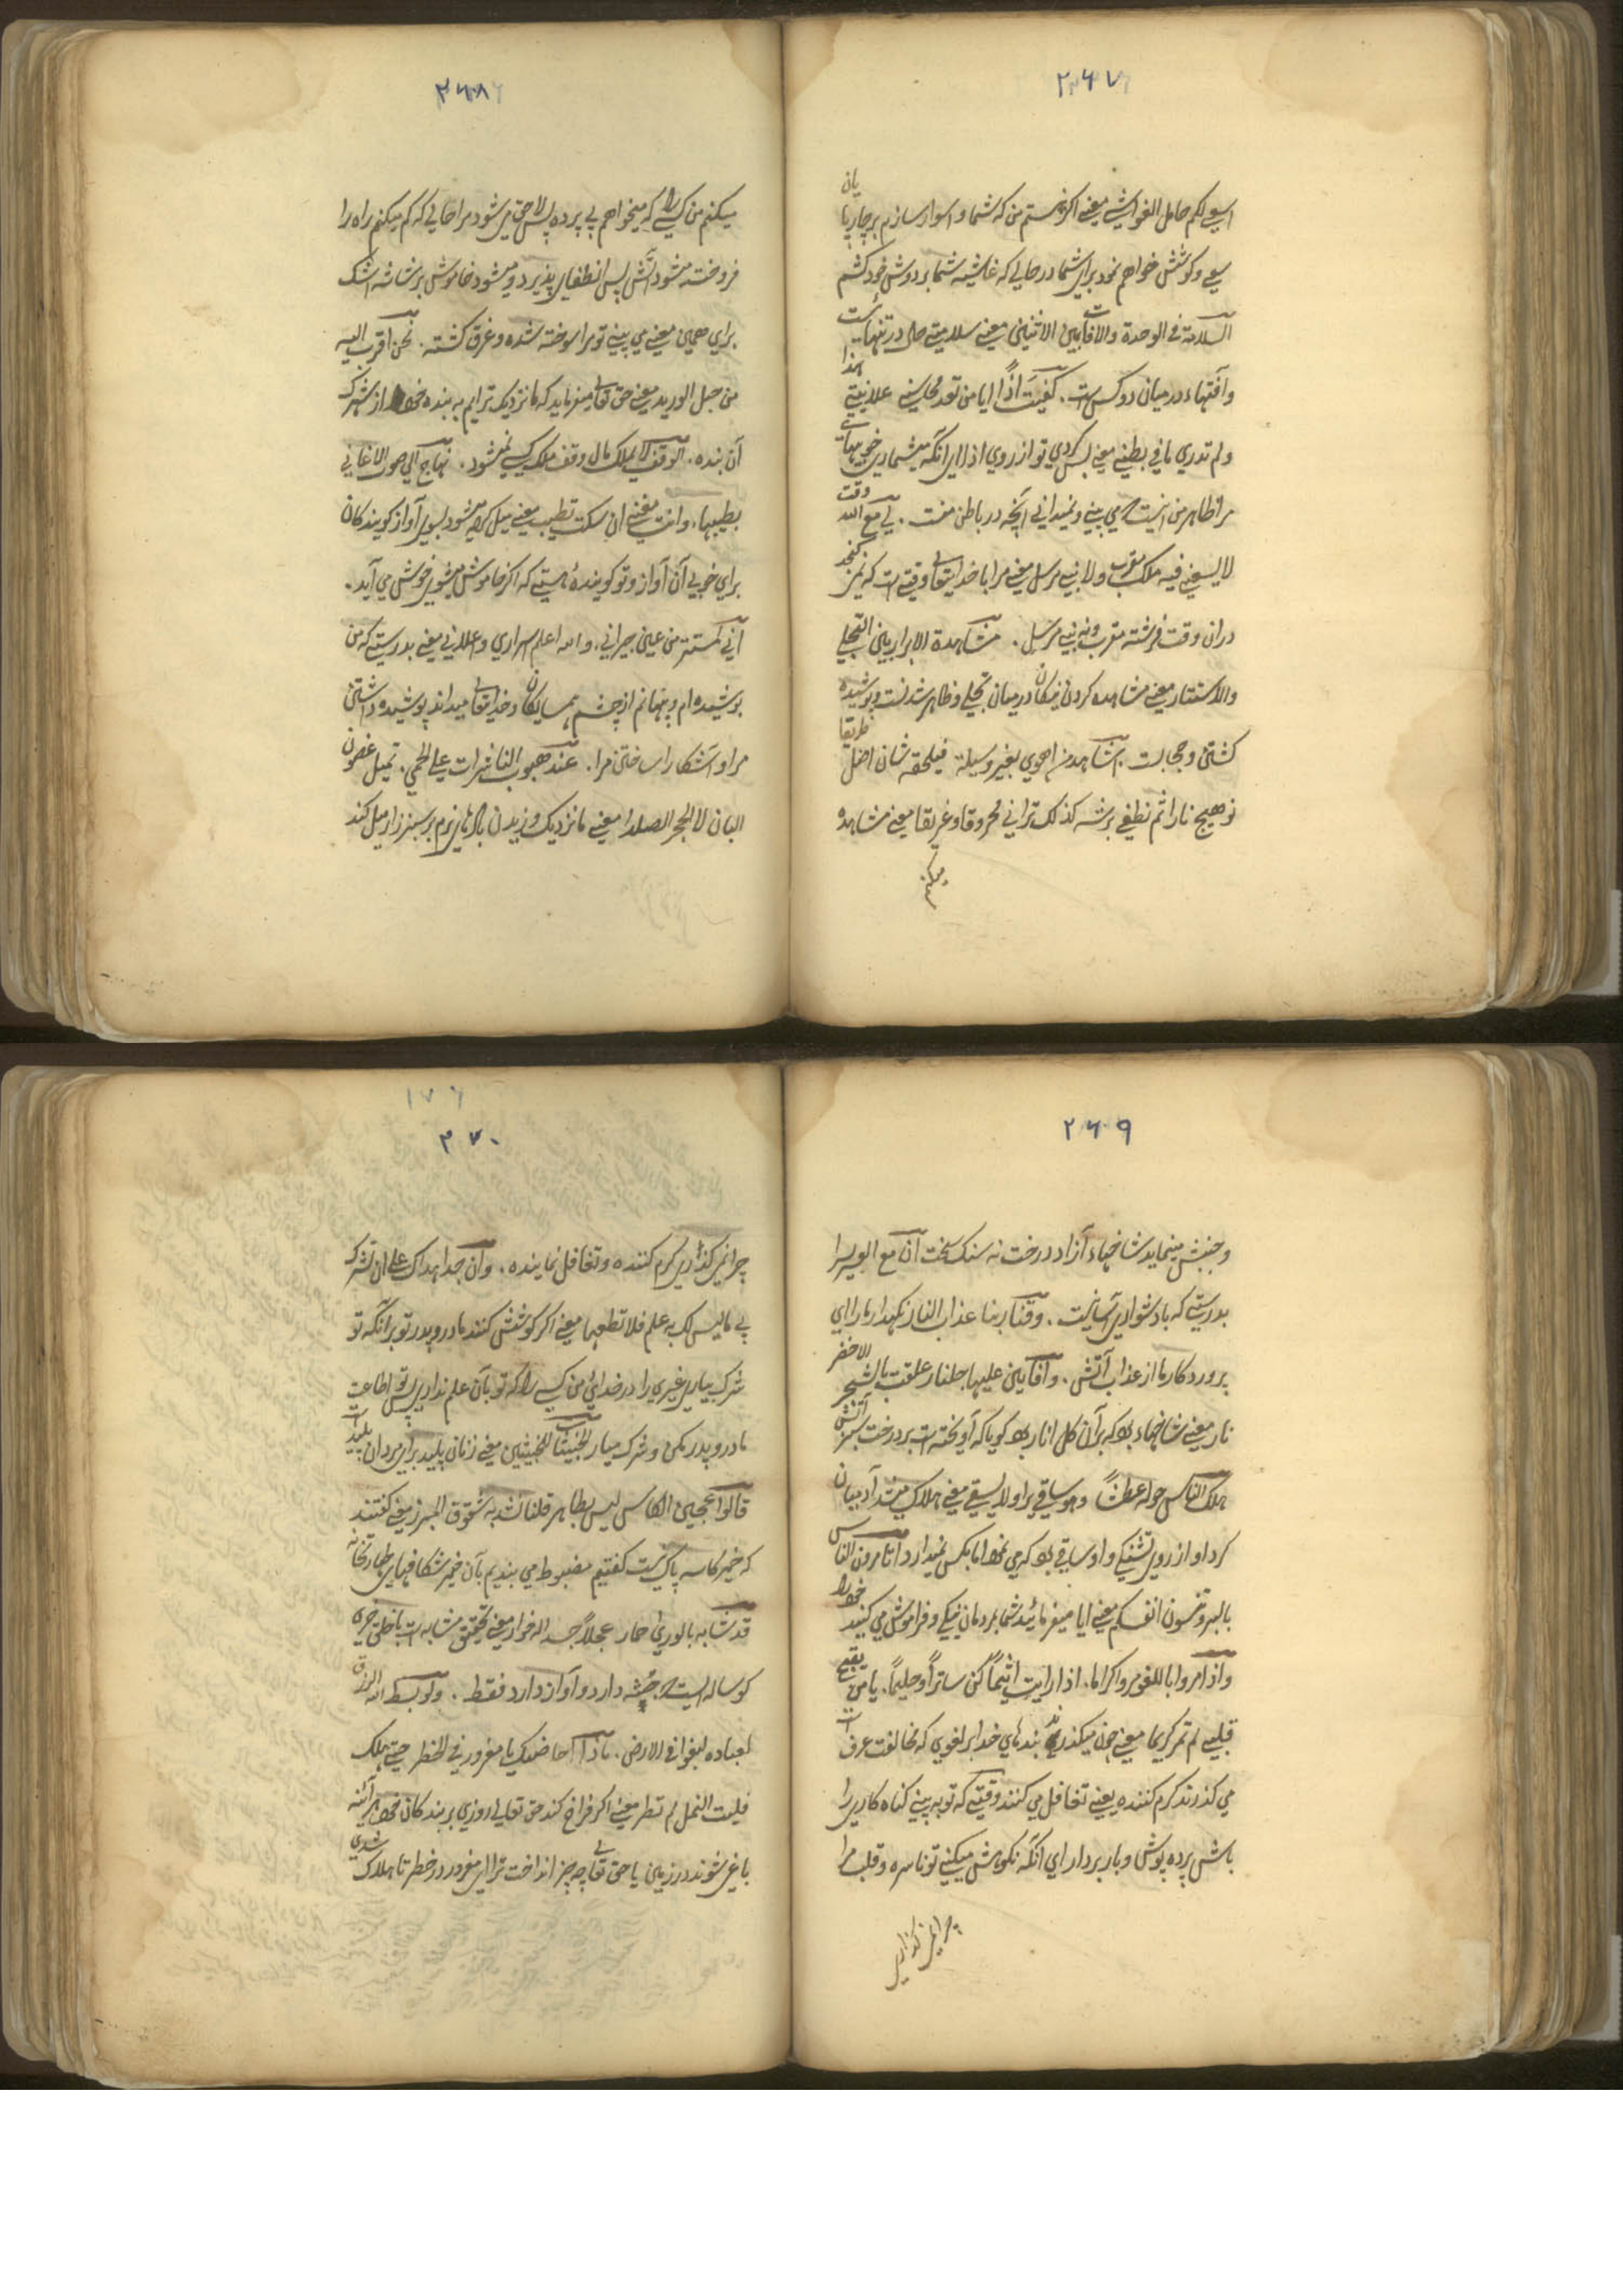 ۲۶۷
اسعی لکم حامل الغواشی یعنی اگر نیستم من که شما را سوار سازم بر چارپایان
سعی و کوشش خواهم نمود برای شما در حالی که غاشیه شما بر دوش خود کشم
السلامة فی الوحدة والافات بین الاثنین یعنی سلامتی حال در تنهائیست
و آفتهاء در میان دو کس است. کفیت اذا ایا من تعد محاسنی علانیتی هذا
ولم تدری ما فی بطنی یعنی بس کردی تو از روی اذا ای آنکه میشماری خوبیهای
مرا ظاهر من اینست که می بینی و نمیدانی آنچه در باطن منست. لی مع الله وقت
لا یسعنی فیه ملک مقرب ولا نبی مرسل یعنی مرا با خدایتعالی وقتی است که نمی گنجد
دران وقت فرشته مقرب و نه نبی مرسل. مشاهدة الابرار بین التجلی
والاستتار یعنی مشاهده کردن نیکان در میان تجلی و ظاهر شدنست و پوشیده
گشتن و حجابست. اشاهد من اهوی بغیر وسیلة فیلحقه شان اضل طریقا
توهیج نارا ثم تطفی برشه کذلک ترانی محروقا و غریقا یعنی مشاهده
میکنم
۲۶۸
میکنم من کسی را که میخواهم بی پرده پس لاحق می شود مرا حالی که گم میکنم راه را
فروخته میشود آتش پس انطفای پذیرد و میشود خاموش برشاشه اشک
برای همین یعنی می بینی تو مرا سوخته شده و غرق گشته. نحن اقرب الیه
من حبل الورید یعنی حق تعالی میفرماید که ما نزدیک تر ایم به بنده خود از شهرگ
آن بنده. الوقف لا یملک مال وقف ملک کسی نمیشود. نهاج الی صوت الاغانی
بطیبها. وانت مغنی ان سکت تطیب یعنی میل کرده میشود بسوی آواز گویندگان
برای خوبی آن آواز و تو گوینده هستی که اگر خاموش میشوی خوش می آید.
انی لمستتر من عین جیرانی. والله اعلم اسراری و اعلانی یعنی بدرستی که من
پوشیده ام و پنهانم از چشم همسایگان و خدایتعالی میداند پوشیده داشتن
مرا و آشکارا ساختن مرا. عند هبوب الناشرات علی الحمی. تمیل غصون
البان لا الحجر الصلد یعنی ما نزدیک وزیدن بادهای نرم بر سبزه زار میل کند
۲۶۹
و جنبش مینماید شاخهاء آزاد درخت نه سنگ سخت ان مع العسر یسرا
بدرستی که با دشواری آسانیست. وقنا ربنا عذاب النار نگهدار ما را ای
پروردگار ما از عذاب آتش. و افانین علیها جلنار علقت بالشجر الاخضر
نار یعنی شاخهاء بود که بر آن گل انار بود گویا که آویخته است بر درخت سبز آتش
هلک الناس حوله عطشا وهو ساقی یرا ولا یسقی یعنی هلاک میشد آدمیان
گرد او از روی تشنگی و او ساقی بود که می نمود اما بکس نمیدارد اتامرون الناس
بالبر وتنسون انفسکم یعنی ایا میفرمائید شما بردمان نیکی و فراموش می کنید خود را
واذا مروا باللغو مروا کراما. اذا رایت اثیما کن ساترا و حلیما. یا من تقبح
قبلی لم تمر کریما یعنی چون میگذرند بندهای خدا بر لغوی که مخالفت عرف است
می گذرند کرم کننده یعنی تغافل می کنند وقتی که تو به بینی گناه کاری را
باش پرده پوش و باربردار ای انکه نکوهش میکنی تو ناسره و قلب مرا
چرا نمی گذاری
۱۷۶
۲۷۰
چرا نمی گذاری کرم کننده و تغافل نماینده. وان جاهداک علی ان تشرک
بی ما لیس لک به علم فلا تطعهما یعنی اگر کوشش کنند مادر و پدر تو برانکه تو
شرک بیاری غیری را در خدائی من کسی را که تو بآن علم نداری پس تو اطاعت
مادر و پدر مکن و شرک میار الخبیثات للخبیثین یعنی زنان پلید برای مردان پلید است
قالوا عجین الکاس لیس بطاهر قلنا نشد به شقوق المبرز یعنی گفتند
که خمیر کاسه پاک نیست گفتیم مضبوط می بندیم بآن خمیر شکافهای طهارتخانه
قد تشابه بالوری حمار عجلا جسدا له خوار یعنی تحقیق مشابه است با خلق خری
گوساله ایست که جثه دارد و آواز دارد فقط. ولو بسط الله الرزق
لعباده لبغوا فی الارض. ماذا اخاضک یا مغرور فی الخطر حتی هلکت
فلیت النمل لم تطر یعنی اگر فراخ کند حق تعالی روزی بر بندگان خود هر آئینه
باغی شوند در زمین یا حق تعالی چه چیز انداخت ترا ای مغرور در خطر تا هلاک شدی